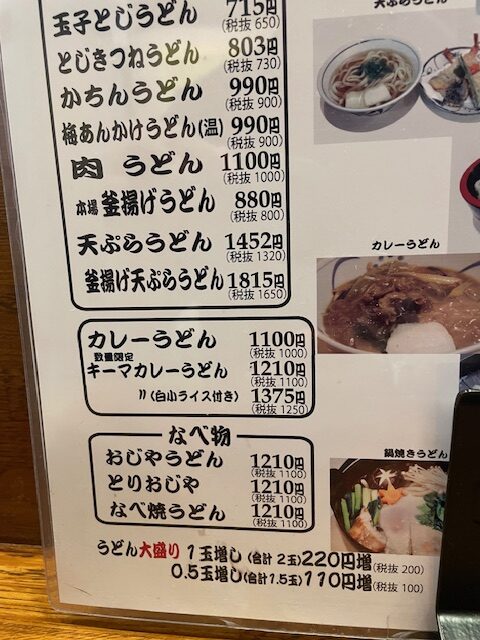 天ぷらうどん
玉子とじうどん 715円
(税抜 650)
とじきつねうどん 803円
(税抜 730)
かちんうどん 990円
(税抜 900)
梅あんかけうどん(温) 990円
(税抜 900)
肉うどん 1100円
(税抜 1000)
本場 釜揚げうどん 880円
(税抜 800)
天ぷらうどん 1452円
(税抜 1320)
釜揚げ天ぷらうどん 1815円
(税抜 1650)
カレーうどん
カレーうどん 1100円
(税抜 1000)
数量限定
キーマカレーうどん 1210円
(税抜 1100)
〃(白小ライス付き) 1375円
(税抜 1250)
なべ物
おじやうどん 1210円
(税抜 1100)
とりおじや 1210円
(税抜 1100)
なべ焼うどん 1210円
(税抜 1100)
鍋焼きうどん
うどん大盛り 1玉増し(合計2玉)220円増(税抜 200)
0.5玉増し(合計1.5玉)110円増(税抜 100)